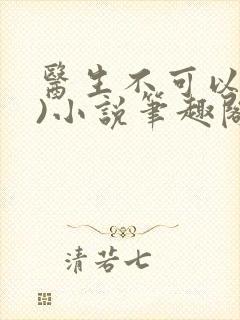 醫生不可以
)小説筆趣閣
清若七